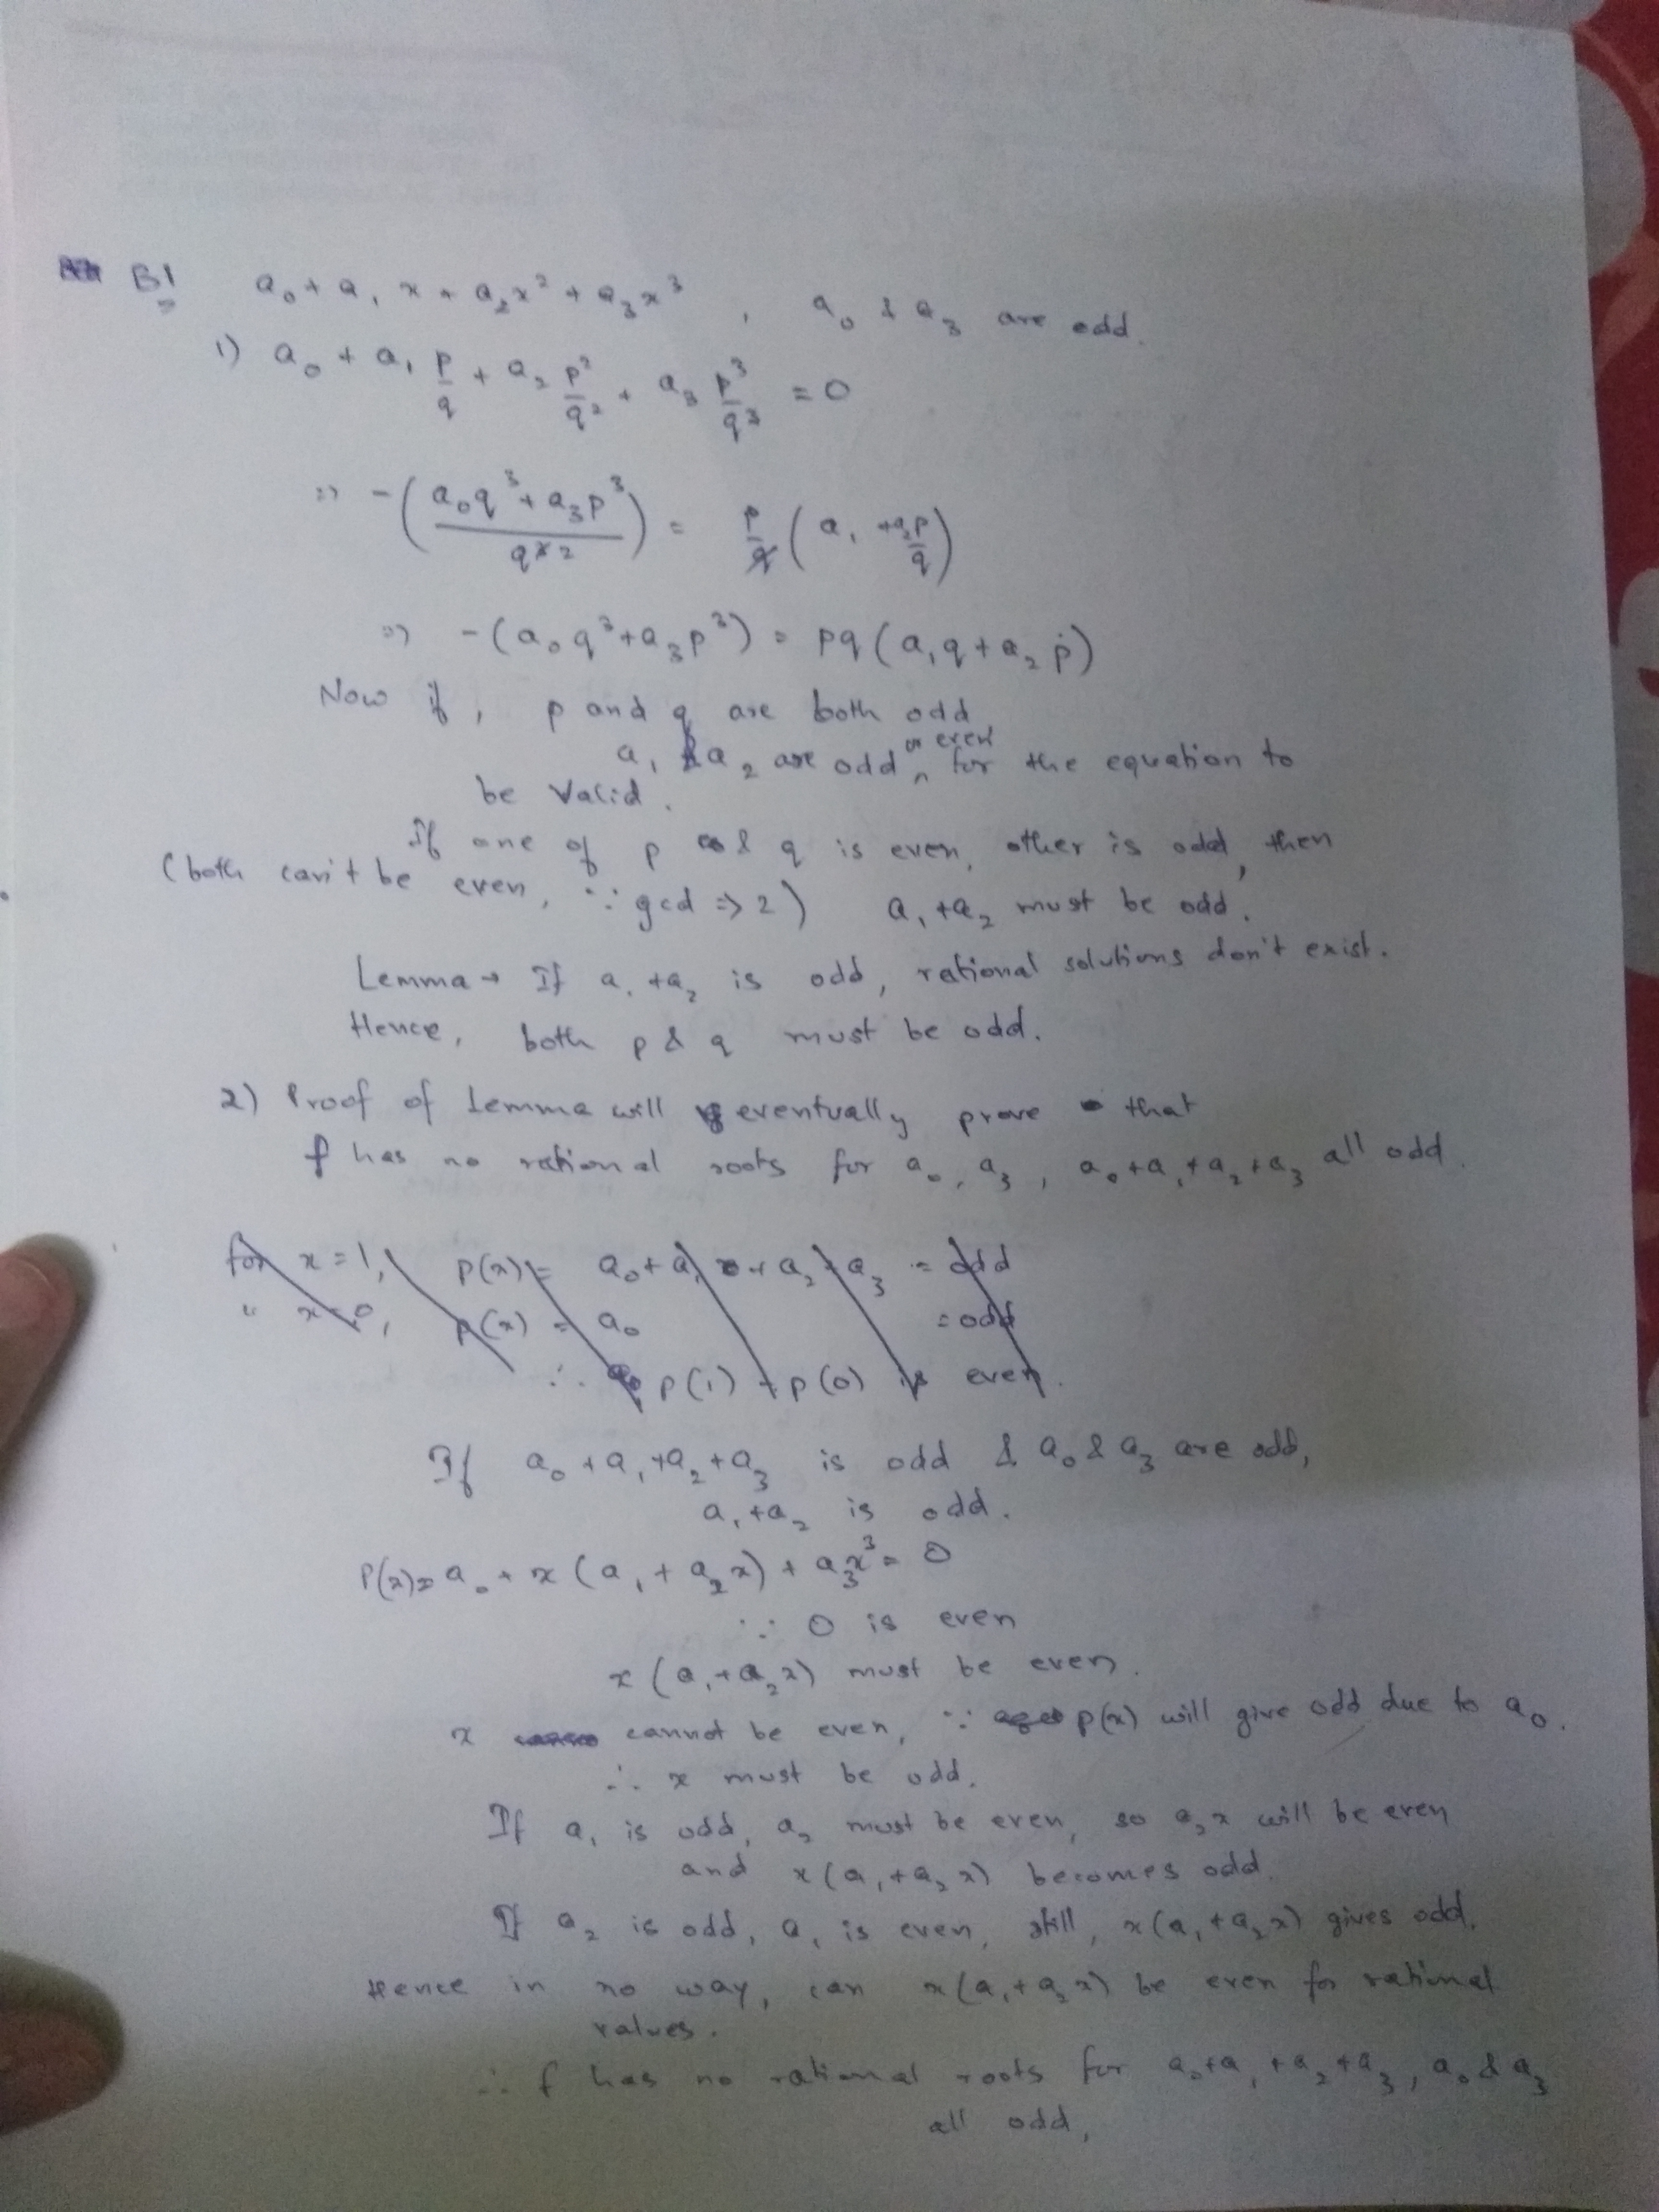 B1 a₀ + a₁x + a₂x² + a₃x³ , a₀ & a₃ are odd.
1) a₀ + a₁ p/q + a₂ p²/q² + a₃ p³/q³ = 0
⇒ -((a₀q³ + a₃p³)/q²) = p(a₁ + a₂p/q)
⇒ -(a₀q³ + a₃p³) = pq(a₁q + a₂p)
Now if, p and q are both odd,
a₁ & a₂ are odd or even for the equation to
be valid.
If one of p & q is even, other is odd, then
(both can't be even, ∵ gcd ⇒ 2) a₁ + a₂ must be odd.
Lemma → If a₁ + a₂ is odd, rational solutions don't exist.
Hence, both p & q must be odd.
2) Proof of Lemma will eventually prove that
f has no rational roots for a₀, a₃, a₀ + a₁ + a₂ + a₃ all odd.
for x = 1, p(x) = a₀ + a₁ + a₂ + a₃ = odd
" x = 0, p(x) = a₀ = odd
∴ p(1) + p(0) is even.
If a₀ + a₁ + a₂ + a₃ is odd & a₀ & a₃ are odd,
a₁ + a₂ is odd.
P(x) = a₀ + x(a₁ + a₂x) + a₃x³ = 0
∵ 0 is even
x(a₁ + a₂x) must be even.
x cannot be even, ∵ p(x) will give odd due to a₀.
∴ x must be odd.
If a₁ is odd, a₂ must be even, so a₂x will be even
and x(a₁ + a₂x) becomes odd.
If a₂ is odd, a₁ is even, still, x(a₁ + a₂x) gives odd.
Hence in no way, can x(a₁ + a₂x) be even for rational
values.
∴ f has no rational roots for a₀ + a₁ + a₂ + a₃, a₀ & a₃
all odd,